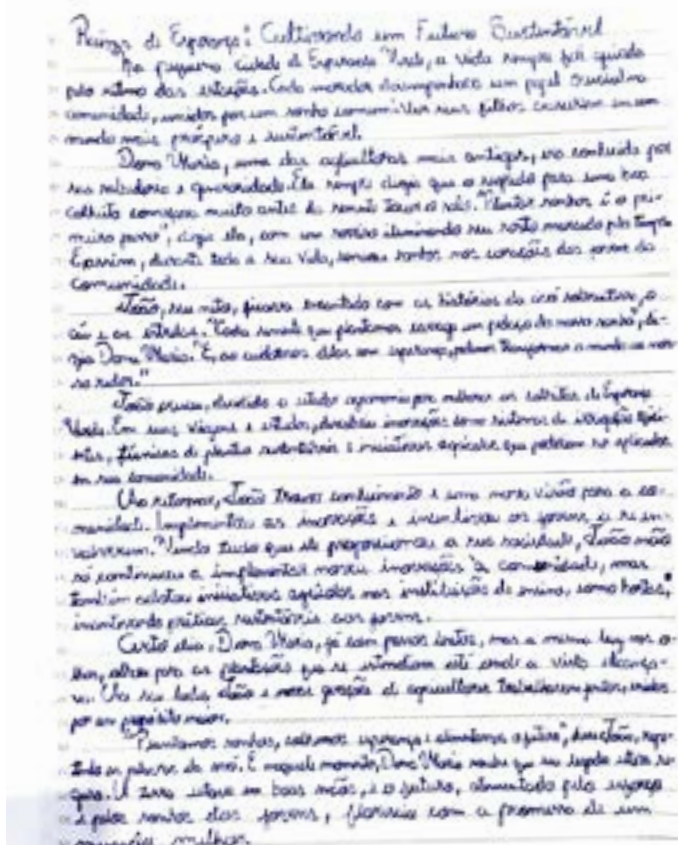 Raízes de Esperança: Cultivando um Futuro Sustentável
Na pequena cidade de Esperança Verde, a vida sempre foi guiada
pelo ritmo das estações. Cada morador desempenhava um papel crucial na
comunidade, unidos por um sonho comum: ver seus filhos crescerem em um
mundo mais próspero e sustentável.
Dona Maria, uma das agricultoras mais antigas, era conhecida por
sua sabedoria e generosidade. Ela sempre dizia que o segredo para uma boa
colheita começava muito antes da semente tocar o solo. "Plantar sonhos é o pri-
meiro passo", dizia ela, com um sorriso iluminando seu rosto marcado pelo tempo.
E assim, durante toda a sua vida, semeou sonhos nos corações dos jovens da
comunidade.
João, seu neto, ficava encantado com as histórias da avó sobre a terra, o
céu e as estrelas. "Cada semente que plantamos carrega um pedaço do nosso sonho", di-
zia Dona Maria. "E, ao cuidarmos delas com esperança, podemos transformar o mundo ao nos-
so redor."
João cresceu, decidido a estudar agronomia para melhorar as colheitas de Esperança
Verde. Em suas viagens e estudos, descobriu inovações como sistemas de irrigação efici-
entes, técnicas de plantio sustentáveis e iniciativas agrícolas que poderiam ser aplicadas
em sua comunidade.
Ao retornar, João trouxe conhecimento e uma nova visão para a co-
munidade. Implementou as inovações e incentivou os jovens a se en-
volverem. Vendo tudo que ele proporcionou a sua sociedade, João não
só continuou a implementar novas inovações à comunidade, mas
também adotou iniciativas agrícolas nas instituições de ensino, como hortas,
incentivando práticas sustentáveis aos jovens.
Certo dia, Dona Maria, já com passos lentos, mas a mesma luz nos o-
lhos, olhou para as plantações que se estendiam até onde a vista alcança-
va. Ao seu lado, João e a nova geração de agricultores trabalhavam juntos, unidos
por um propósito maior.
"Plantamos sonhos, colhemos esperança e alimentamos o futuro", disse João, repe-
tindo as palavras da avó. E naquele momento, Dona Maria soube que seu legado estava se-
guro. A terra estava em boas mãos, e o futuro, alimentado pela esperança
e pelos sonhos dos jovens, florescia com a promessa de um
amanhã melhor.